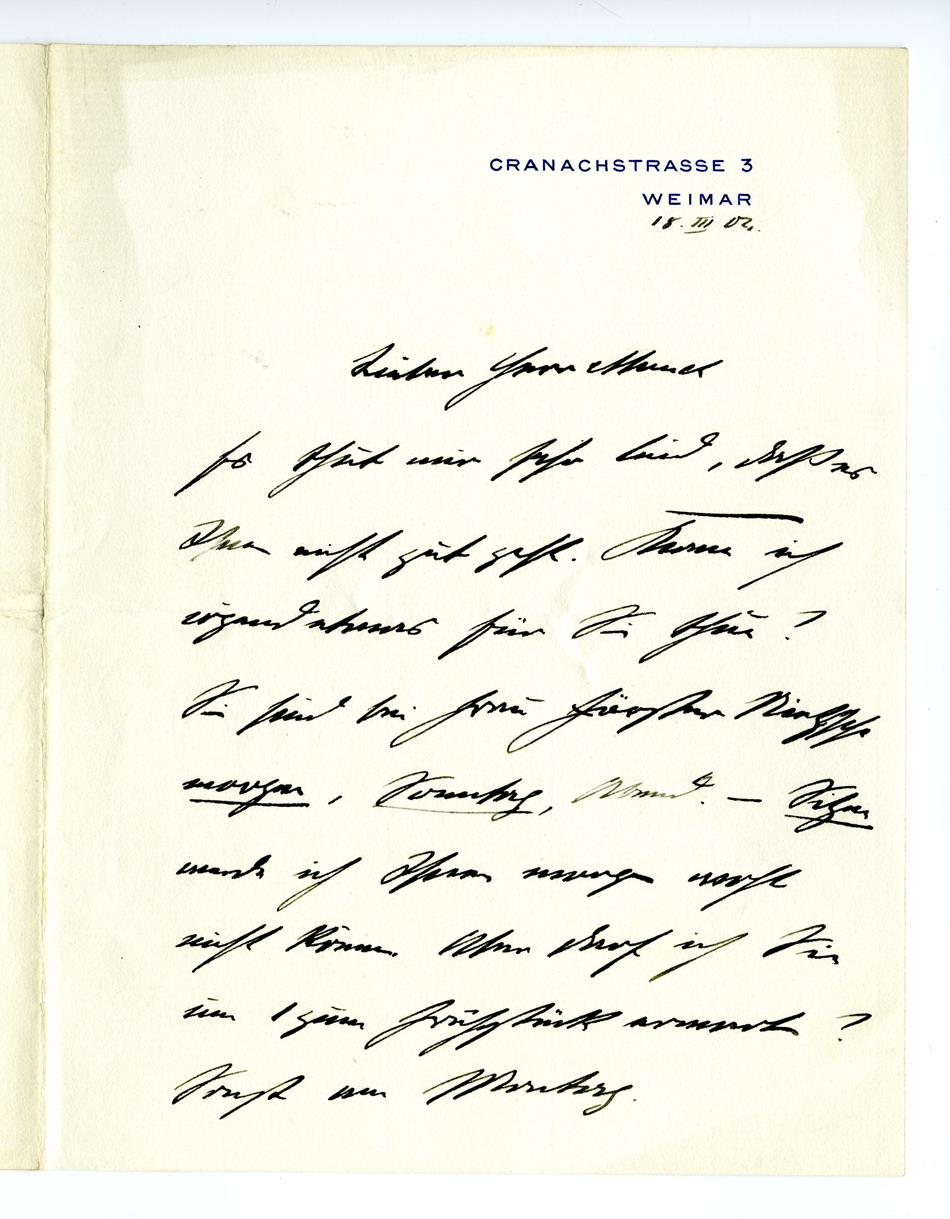 CRANACHSTRASSE 3
WEIMAR
18. III 04.
Lieber Herr Munch
Es thut mir sehr leid, daß es
Ihnen nicht gut geht. Kann ich
irgend etwas für Sie thun?
Sie sind bei Frau Förster Nietzsche
morgen, Sonntag, Abend. — Sitzen
werde ich Ihnen morgen wohl
nicht können. Aber darf ich Sie
um 1 zum Frühstück erwarten?
Sonst am Montag.